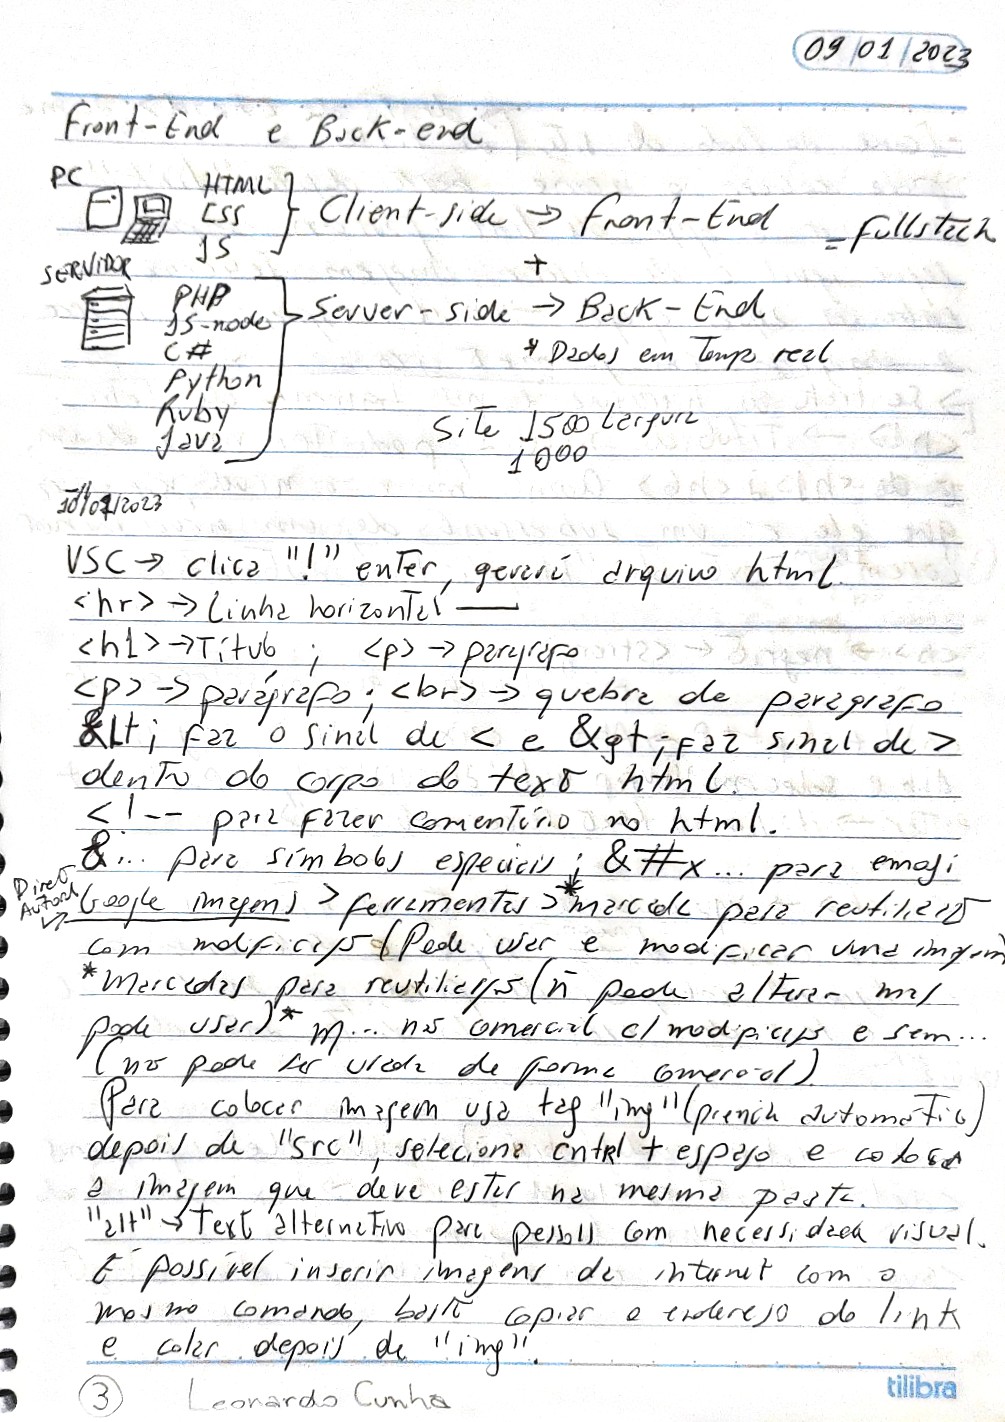 09/01/2023
Front-End e Back-end
PC
HTML
CSS
JS
Client-side → Front-End
= fullstack
+
SERVIDOR
PHP
JS-node
C#
Python
Ruby
Java
Server-side → Back-End
* Dados em Tempo real
Site 1500 largura
1000
10/01/2023
VSC → clica "!" enter, gerará arquivo html.
<hr> → Linha horizontal —
<h1> → Título ; <p> → parágrafo
<p> → parágrafo ; <br> → quebra de paragrafo
&lt; faz o sinal de < e &gt; faz sinal de >
dentro do corpo do texto html.
<!-- para fazer comentário no html.
&... para símbolos especiais ; &#x... para emoji
Direto Autoral
Google imagens > ferramentas > *marcada para reutilização
com modificação (Pode usar e modificar uma imagem)
*Marcadas para reutilização (ñ pode alterar mas
pode usar) * m... não comercial c/ modificação e sem...
(não pode ser usada de forma comercial)
Para colocar imagem usa tag "img" (preench automático)
depois de "src", selecione cntrl + espaço e coloca
a imagem que deve estar na mesma pasta.
"alt" → Text alternativo para pessoas com necessidade visual.
É possível inserir imagens da internet com o
mesmo comando, basta copiar o endereço do link
e colar depois de "img".
3
Leonardo Cunha
tilibra